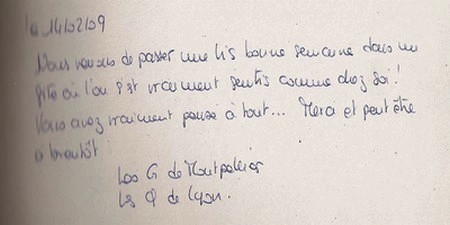 le 14/02/09
Nous venons de passer une très bonne semaine dans un
gîte où l'on s'est vraiment sentis comme chez soi!
Vous avez vraiment pensé à tout... Merci et peut être
à bientôt
Les G de Montpellier
Les Q de Lyon.